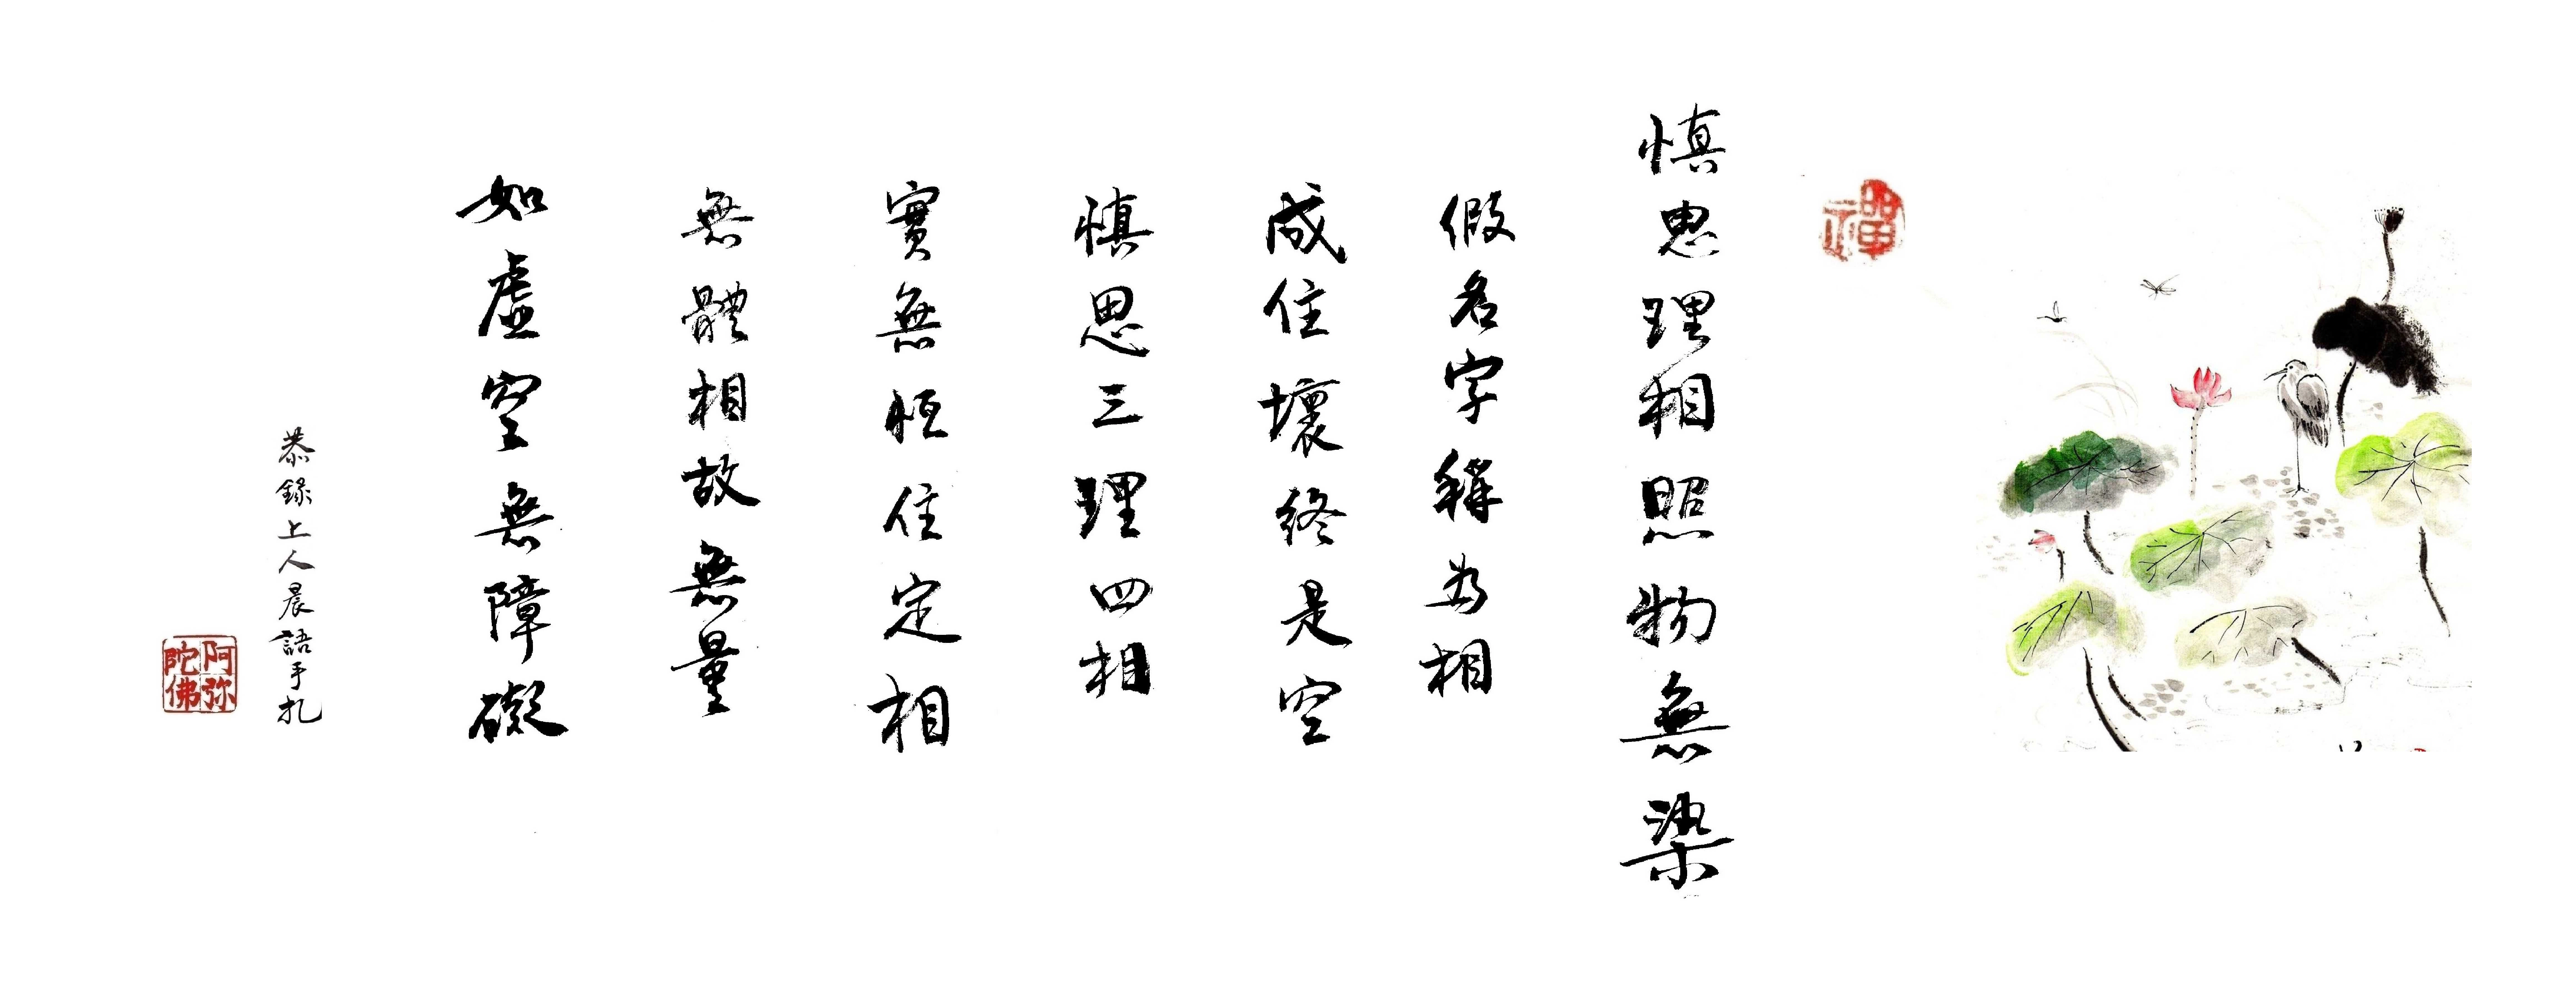 禪
慎思理相照物無染
假名字稱為相
成住壞終是空
慎思三理四相
實無恒住定相
無體相故無量
如虛空無障礙
恭錄上人晨語手札
阿弥
陀佛